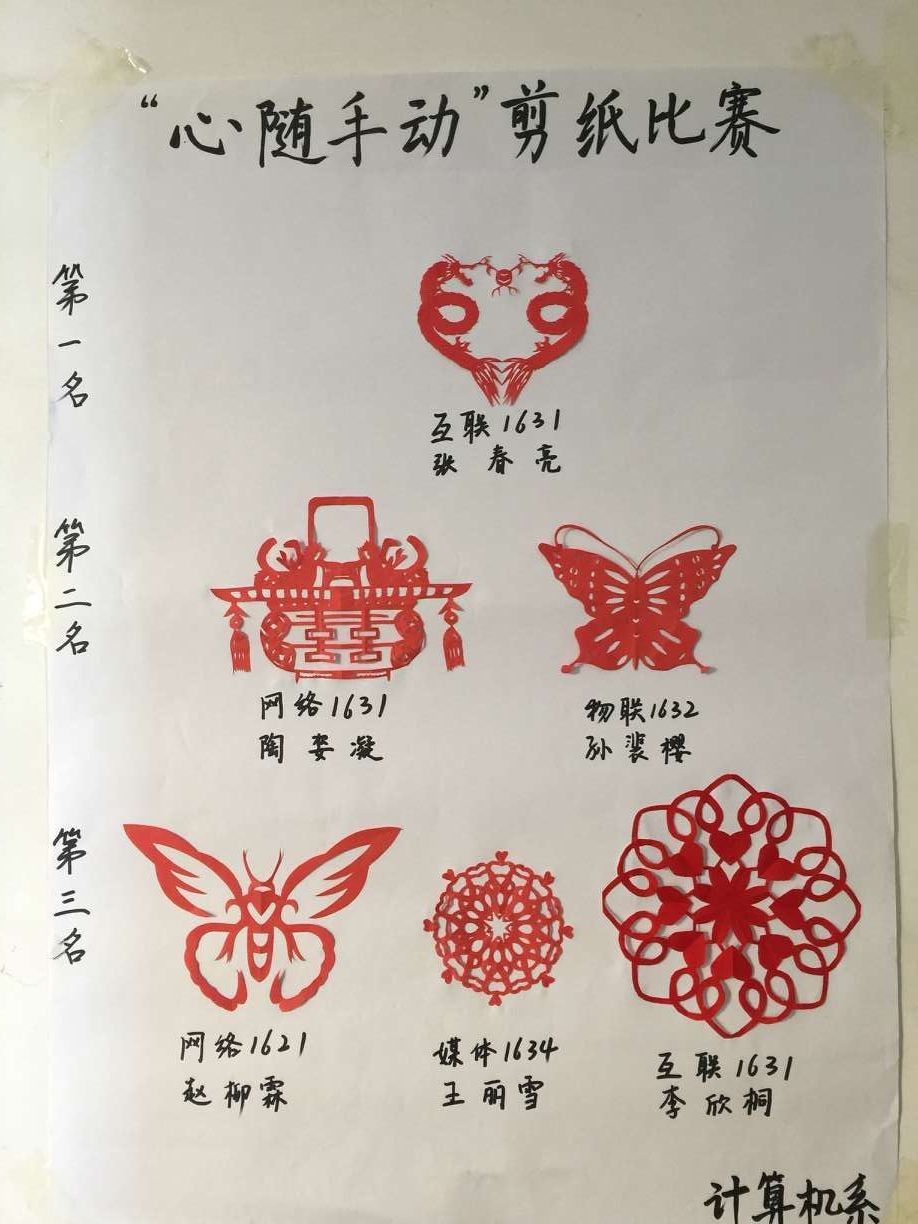 “心随手动”剪纸比赛
第一名
互联1631
张春亮
第二名
网络1631
陶姿凝
物联1632
孙裳樱
第三名
网络1621
赵柳霖
媒体1634
王丽雪
互联1631
李欣桐
计算机系